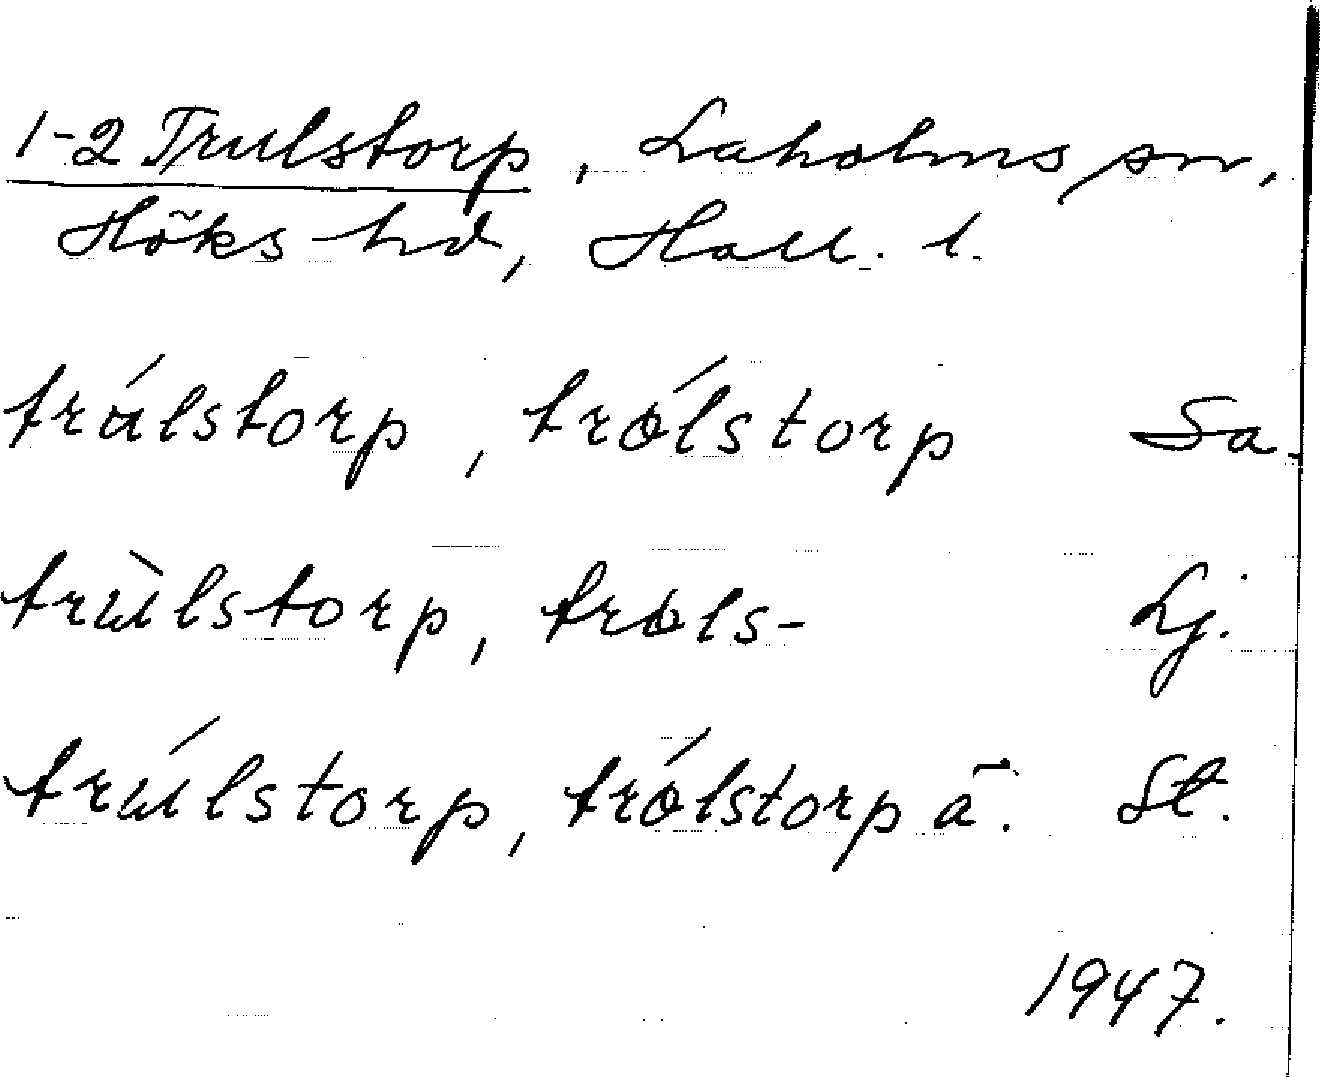 1-2 Trulstorp, Laholms sn,
Höks hd, Hall. l.
trúlstorp, trólstorp Sa.
trùlstorp, trols- Lj.
trúlstorp, trólstorp ā. St.
1947.